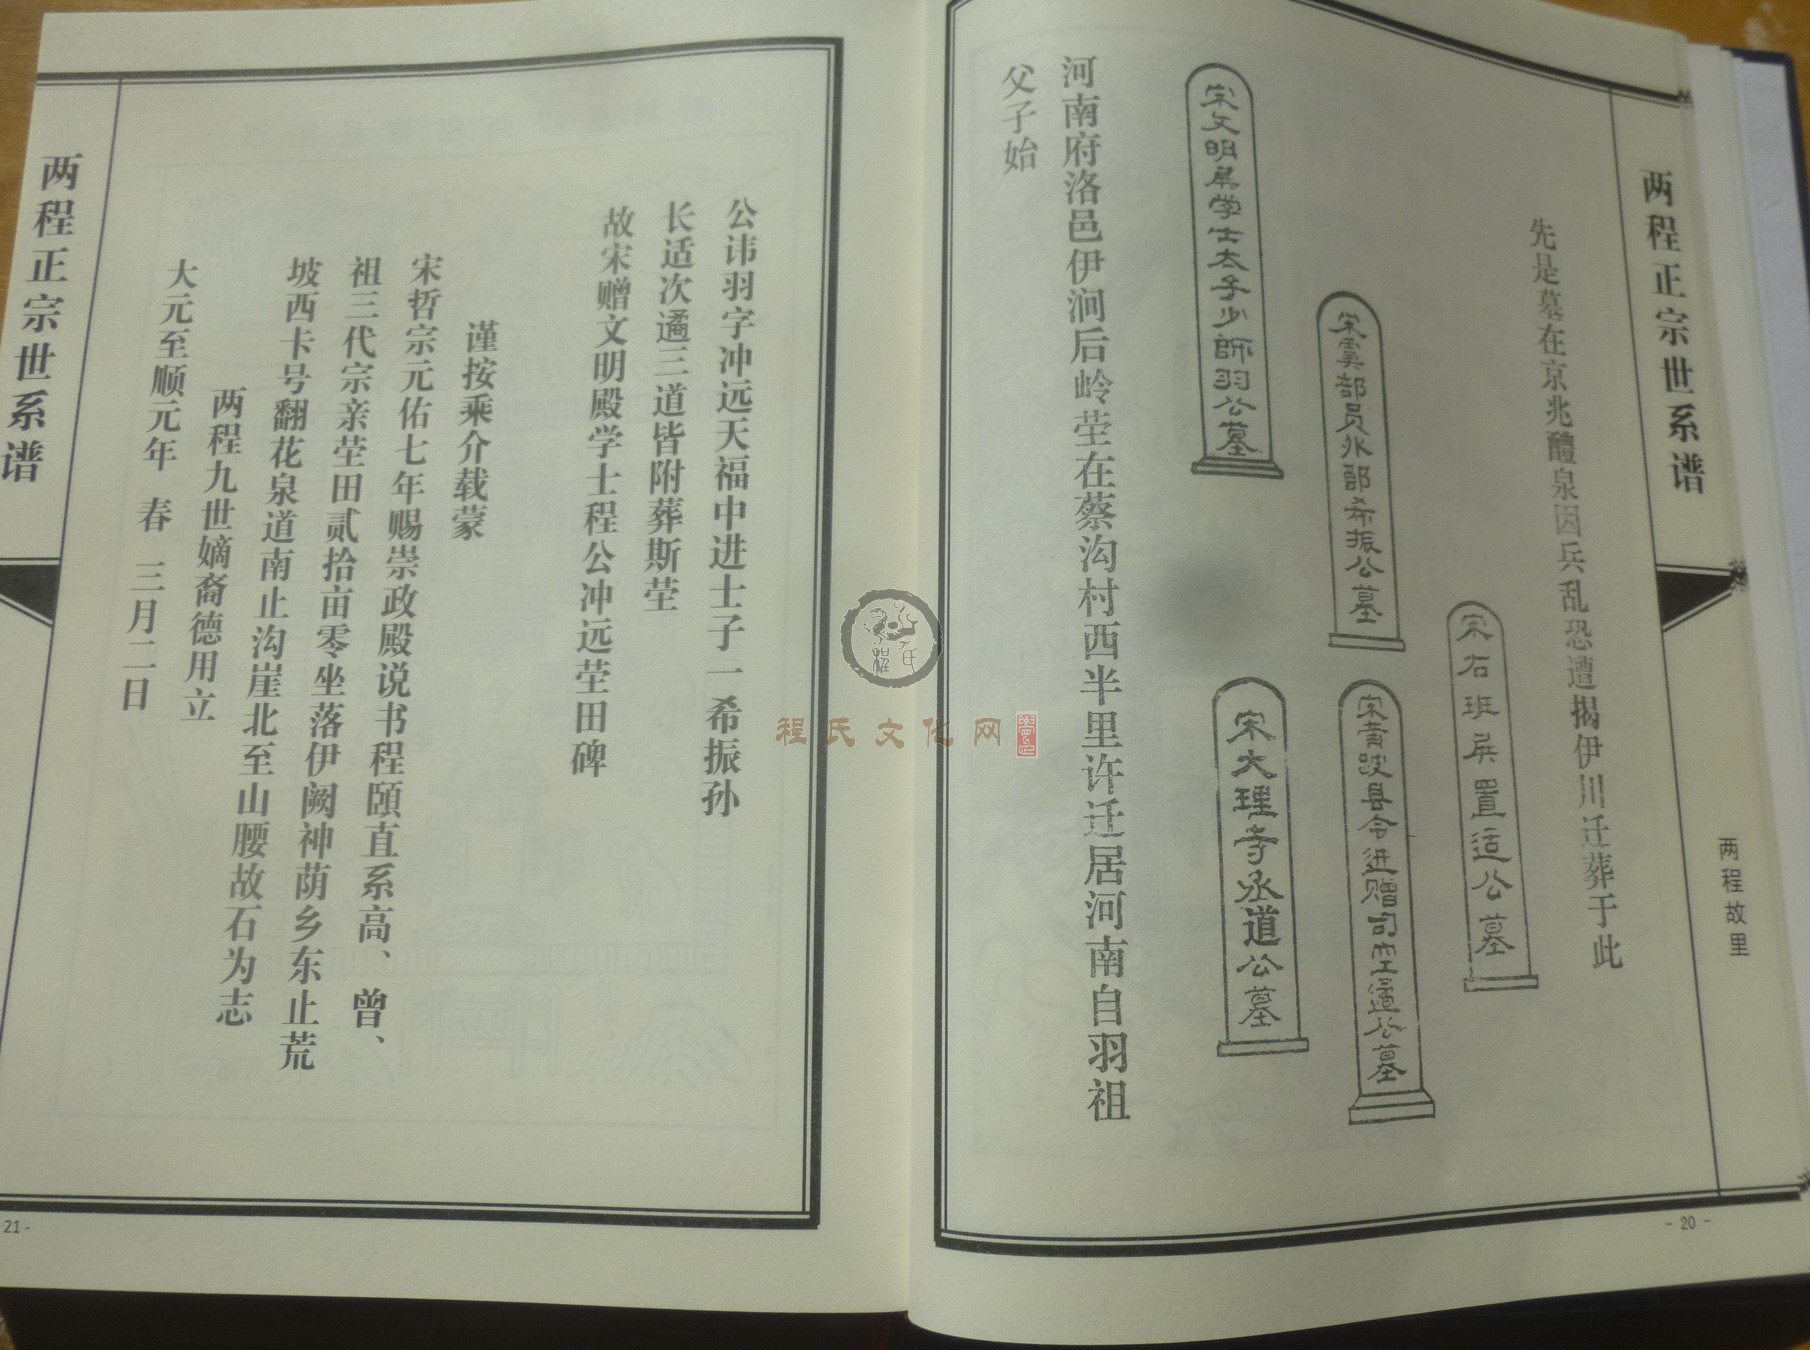 两程正宗世系谱
两程故里
- 20 -
先是墓在京兆醴泉因兵乱恐遭揭伊川迁葬于此
宋右班殿置适公墓
宋虞部员外郎希振公墓
宋黄陂县令进赠司空遹公墓
宋文明殿学士太子少師羽公墓
宋大理寺丞道公墓
河南府洛邑伊涧后岭茔在蔡沟村西半里许迁居河南自羽祖
父子始
公讳羽字冲远天福中进士子一希振孙
长适次遹三道皆附葬斯茔
故宋赠文明殿学士程公冲远茔田碑
谨按乘介载蒙
宋哲宗元佑七年赐崇政殿说书程颐直系高、曾、
祖三代宗亲茔田贰拾亩零坐落伊阙神荫乡东止荒
坡西卡号翻花泉道南止沟崖北至山腰故石为志
两程九世嫡裔德用立
大元至顺元年 春 三月二日
两程正宗世系谱
21 -
程氏文化网